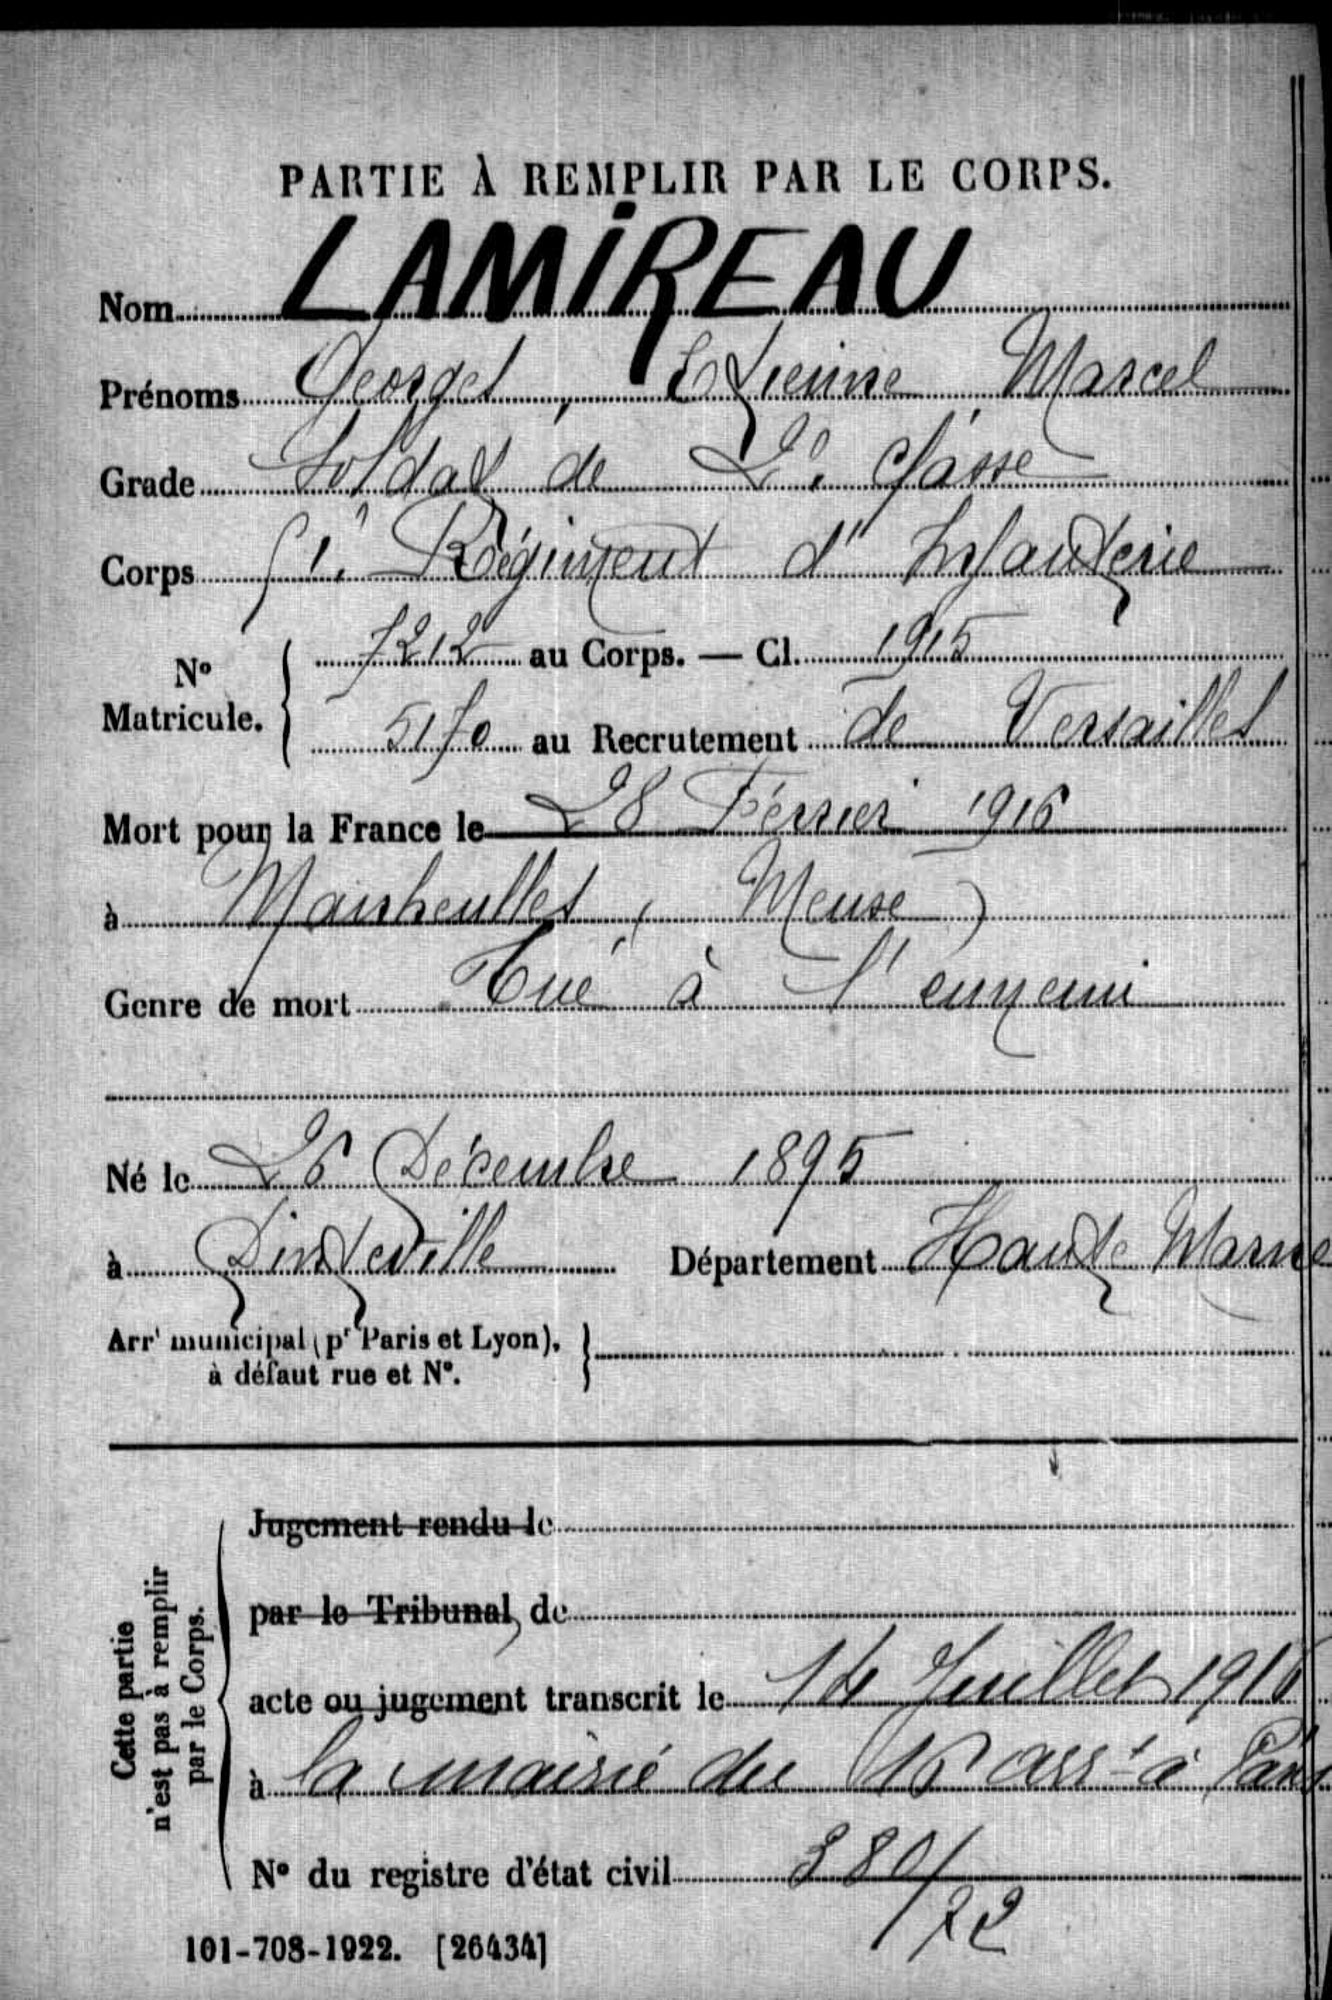 PARTIE À REMPLIR PAR LE CORPS.
Nom LAMIREAU
Prénoms Georges, Etienne Marcel
Grade Soldat de 2e. classe
Corps Régiment d'Infanterie
7212 au Corps. — Cl. 1915
N° Matricule.
5170 au Recrutement de Versailles
Mort pour la France le 28 Février 1916
à Manheulles (Meuse)
Genre de mort Tué à l'ennemi
Né le 26 Décembre 1895
à Dinteville Département Haute Marne
Arrt municipal (pr Paris et Lyon),
à défaut rue et N°.
Cette partie
n'est pas à remplir
par le Corps.
Jugement rendu le
par le Tribunal de
acte ou jugement transcrit le 14 Juillet 1916
à la mairie du 16 arrt à Paris
N° du registre d'état civil 380/
/22
101-708-1922. [26434]